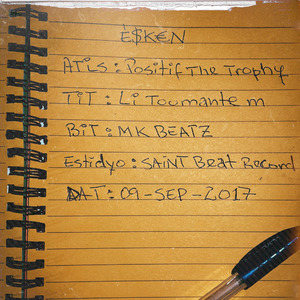 E$KEN
ATiS : Positif The Trophy
TiT : Li Toumante m
BiT : MK BEATZ
Estidyo : SAiNT BEat REcord
DAT : 09-SEP-2017